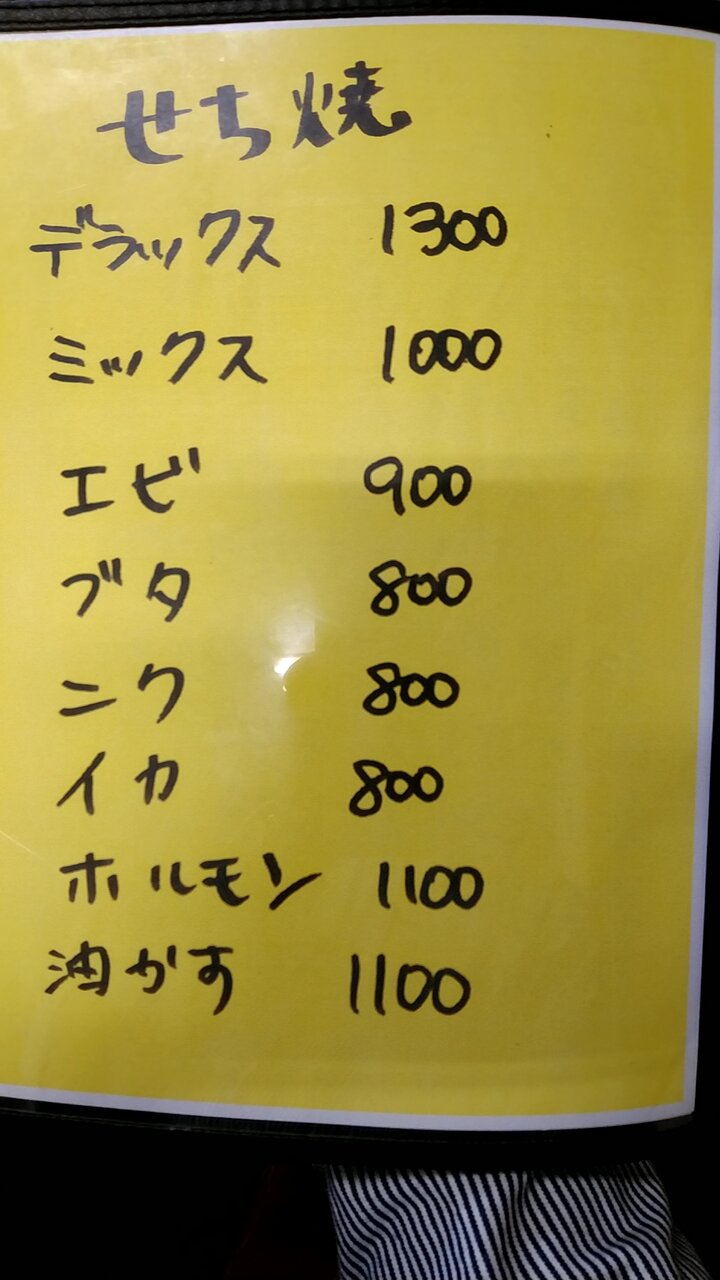 せち焼
デラックス 1300
ミックス 1000
エビ 900
ブタ 800
ニク 800
イカ 800
ホルモン 1100
油かす 1100